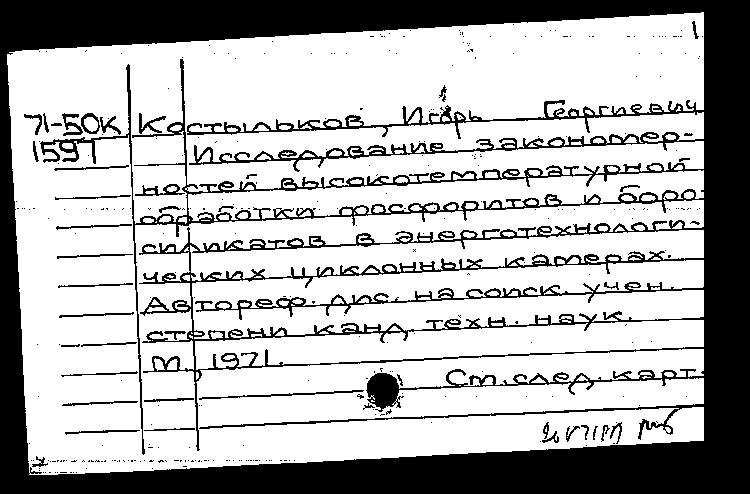 1
71-50К Костыльков, Игорь Георгиевич
1597 Исследование закономер-
ностей высокотемпературной
обработки фосфоритов и боро-
силикатов в энерготехнологи-
ческих циклонных камерах.
Автореф. дис. на соиск. учен.
степени канд. техн. наук.
М., 1971.
См. след. карт.